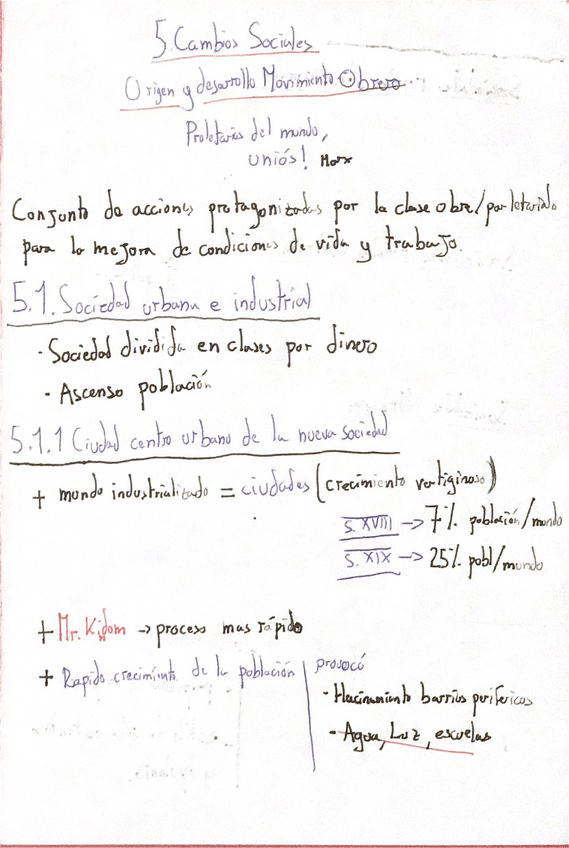 5. Cambios Sociales
Origen y desarrollo Movimiento Obrero
Proletarios del mundo,
uniós! Marx
Conjunto de acciones protagonizadas por la clase obre/proletariado
para la mejora de condiciones de vida y trabajo.
5.1. Sociedad urbana e industrial
· Sociedad dividida en clases por dinero
· Ascenso población
5.1.1 Ciudad centro urbano de la nueva sociedad
+ mundo industrializado = ciudades (crecimiento vertiginoso)
S. XVIII -> 7% población/mundo
S. XIX -> 25% pobl/mundo
+ Mr. Kidom -> proceso mas rápido
+ Rapido crecimiento de la población | provocó
- Hacinamiento barrios perifericos
- Agua, Luz, escuelas